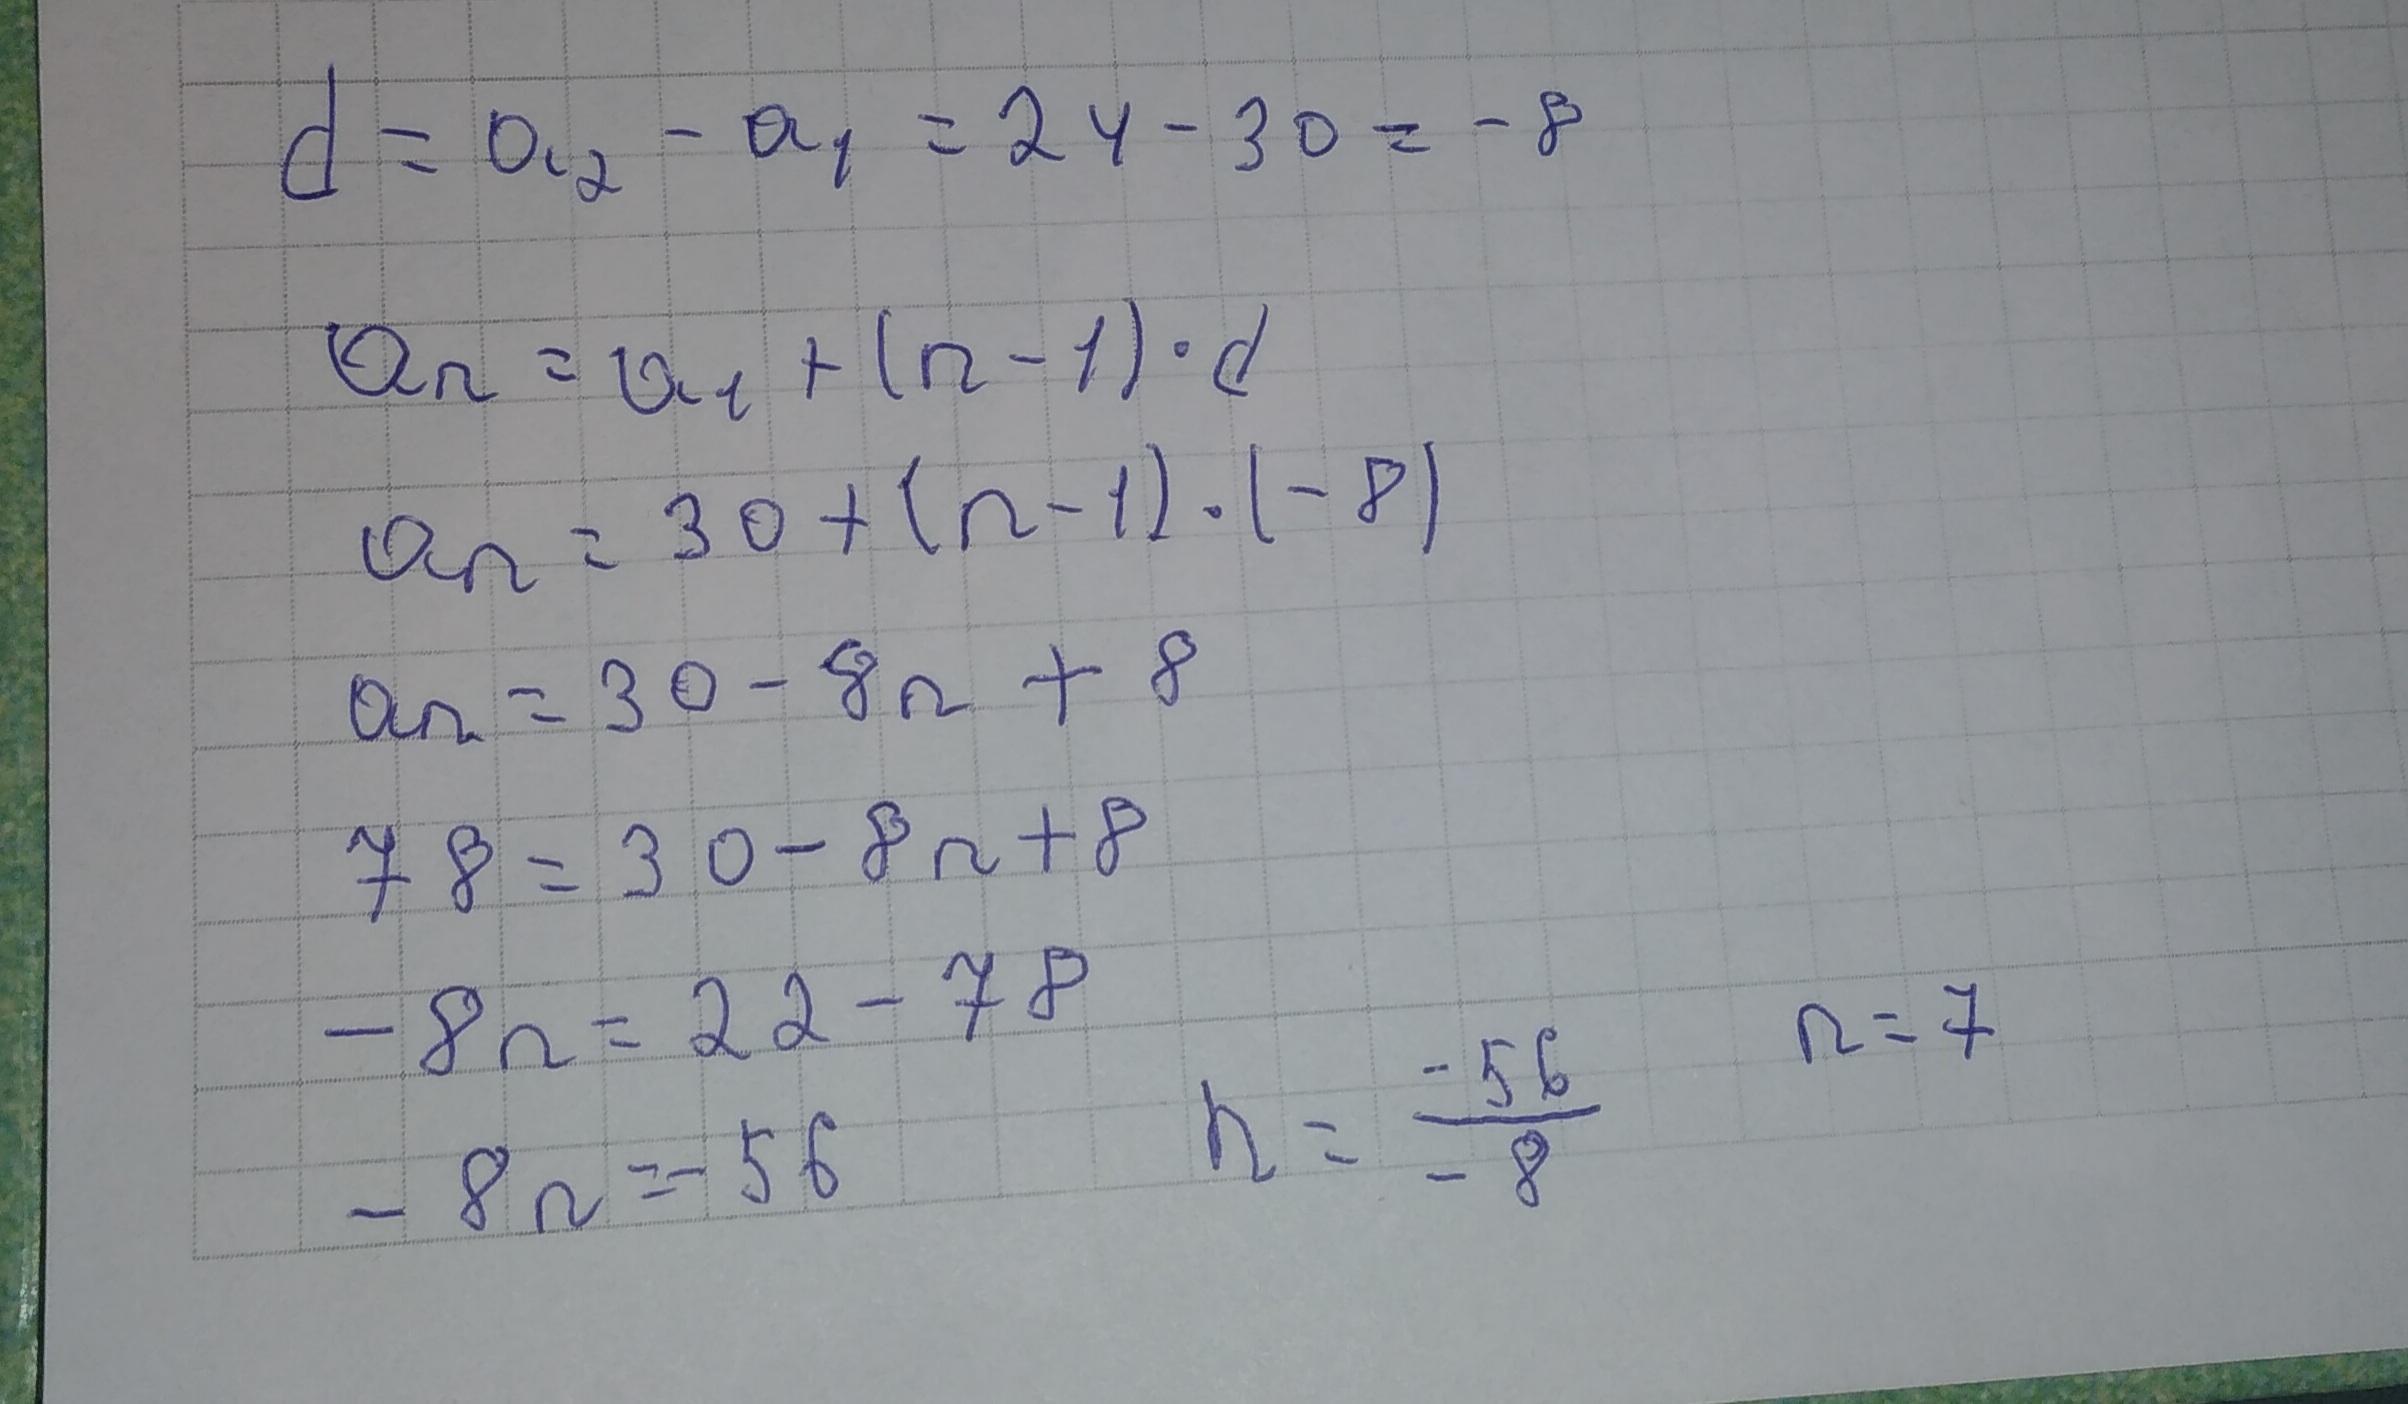 d = a₂ - a₁ = 24 - 30 = -8
aₙ = a₁ + (n-1)·d
aₙ = 30 + (n-1)·(-8)
aₙ = 30 - 8n + 8
78 = 30 - 8n + 8
-8n = 22 - 78
-8n = -56 n = -56/-8 n = 7